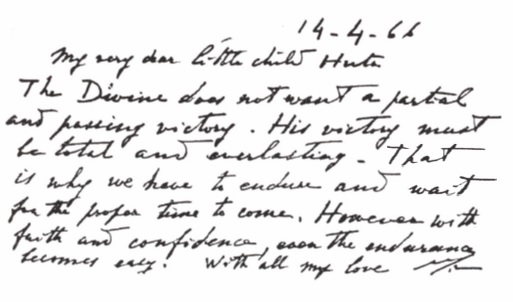 14-4-66
My very dear little child Huta
The Divine does not want a partial
and passing victory. His victory must
be total and everlasting - That
is why we have to endure and wait
for the proper time to come. However with
faith and confidence, even the endurance
becomes easy. With all my love